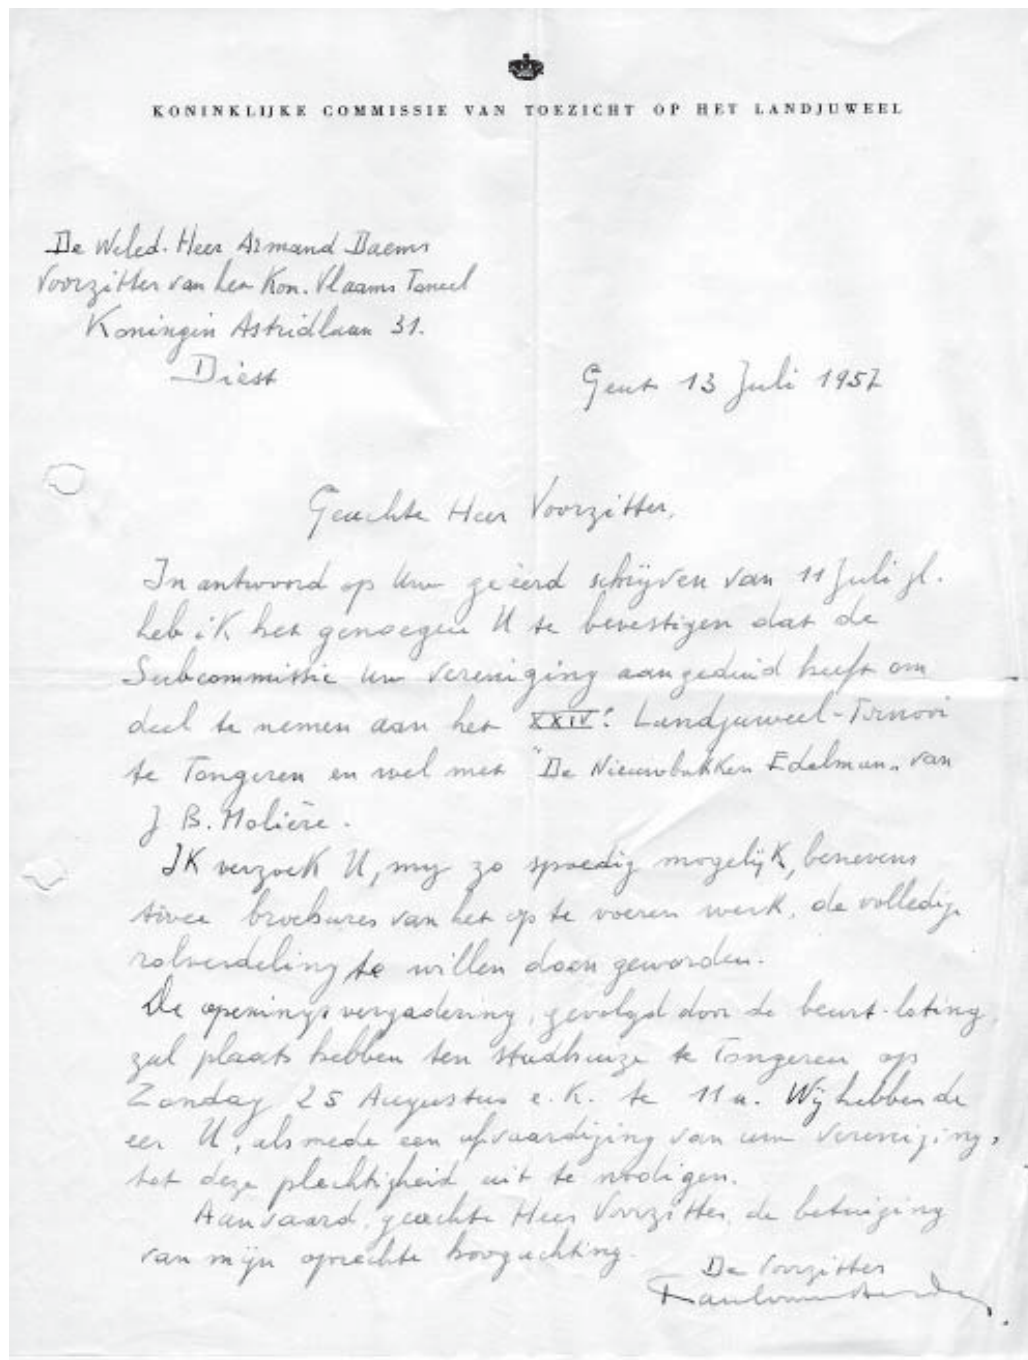 KONINKLIJKE COMMISSIE VAN TOEZICHT OP HET LANDJUWEEL
De Weled. Heer Armand Daems
Voorzitter van het Kon. Vlaams Toneel
Koningin Astridlaan 31.
Diest
Gent 13 Juli 1957
Geachte Heer Voorzitter,
In antwoord op Uw geëerd schrijven van 11 Juli jl.
heb ik het genoegen U te bevestigen dat de
Subcommissie uw vereniging aangeduid heeft om
deel te nemen aan het XXIVe Landjuweel-Tornooi
te Tongeren en wel met "De Nieuwbakken Edelman" van
J B. Molière.
Ik verzoek U, mij zo spoedig mogelijk, benevens
twee brochures van het op te voeren werk, de volledige
rolverdeling te willen doen geworden.
De openingsvergadering, gevolgd door de beurt-loting,
zal plaats hebben ten stadhuize te Tongeren op
Zondag 25 Augustus e.k. te 11 u. Wij hebben de
eer U, alsmede een afvaardiging van uw vereniging,
tot deze plechtigheid uit te nodigen.
Aanvaard, geachte Heer Voorzitter, de betuiging
van mijn oprechte hoogachting.
De Voorzitter